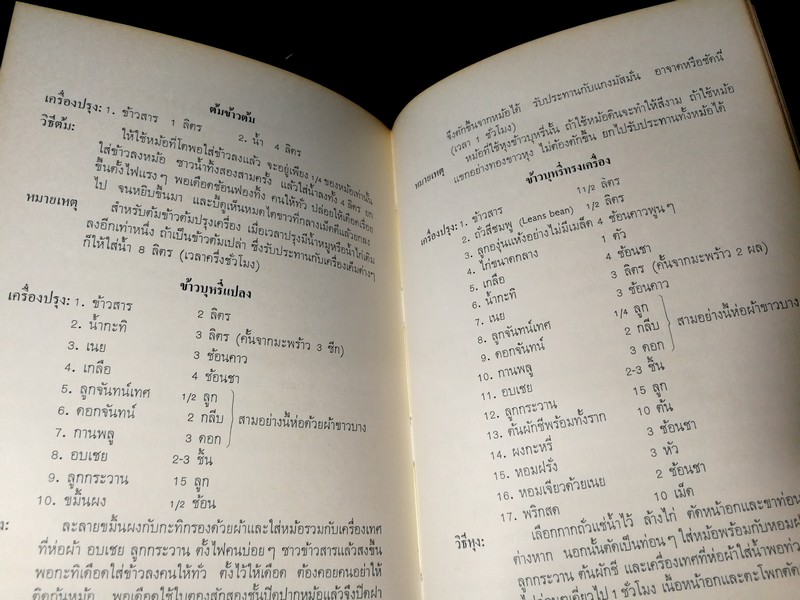 ต้มข้าวต้ม
เครื่องปรุง: 1. ข้าวสาร 1 ลิตร 2. น้ำ 4 ลิตร
วิธีต้ม: ให้ใช้หม้อที่โตพอใส่ข้าวลงแล้ว จะอยู่เพียง 1/4 ของหม้อเท่านั้น
ใส่ข้าวลงหม้อ ซาวน้ำทิ้งสองสามครั้ง แล้วใส่น้ำลงทั้ง 4 ลิตร ยก
ขึ้นตั้งไฟแรงๆ พอเดือดช้อนฟองทิ้ง คนให้ทั่ว ปล่อยให้เดือดเรื่อย
ไป จนหยิบขึ้นมา และบี้ดูเห็นหมดไตขาวที่กลางเม็ดดีแล้วยกลง
หมายเหตุ สำหรับต้มข้าวต้มปรุงเครื่อง เมื่อเวลาปรุงมีน้ำหมูหรือน้ำไก่เติม
ลงอีกเท่าหนึ่ง ถ้าเป็นข้าวต้มเปล่า ซึ่งรับประทานกับเครื่องเค็มต่างๆ
ก็ให้ใส่น้ำ 8 ลิตร (เวลาครึ่งชั่วโมง)
ข้าวบุหรี่แปลง
เครื่องปรุง: 1. ข้าวสาร 2 ลิตร
2. น้ำกะทิ 3 ลิตร (คั้นจากมะพร้าว 3 ซีก)
3. เนย 3 ช้อนคาว
4. เกลือ 4 ช้อนชา
5. ลูกจันทน์เทศ 1/2 ลูก
6. ดอกจันทน์ 2 กลีบ สามอย่างนี้ห่อด้วยผ้าขาวบาง
7. กานพลู 3 ดอก
8. อบเชย 2-3 ชิ้น
9. ลูกกระวาน 15 ลูก
10. ขมิ้นผง 1/2 ช้อน
ละลายขมิ้นผงกับกะทิกรองด้วยผ้าและใส่หม้อรวมกับเครื่องเทศ
ที่ห่อผ้า อบเชย ลูกกระวาน ตั้งไฟคนบ่อยๆ ซาวข้าวสารแล้วสงขึ้น
พอกะทิเดือดใส่ข้าวลงคนให้ทั่ว ตั้งไว้ให้เดือด ต้องคอยคนอย่าให้
ติดก้นหม้อ พอเดือดใช้ใบตองสักสองชั้นปิดปากหม้อแล้วจึงปิดฝา
จึงตักขึ้นจากหม้อได้ รับประทานกับแกงมัสมั่น อาจาดหรือชัดนี่
(เวลา 1 ชั่วโมง)
หมายเหตุ หม้อที่ใช้หุงข้าวบุหรี่นั้น ถ้าใช้หม้อดินจะทำให้สีงาม ถ้าใช้หม้อ
แขกอย่างทองขาวหุง ไม่ต้องตักขึ้น ยกไปรับประทานทั้งหม้อได้
ข้าวบุหรี่ทรงเครื่อง
เครื่องปรุง: 1. ข้าวสาร 11/2 ลิตร
2. ถั่วสีชมพู (Leans bean) 1/2 ลิตร
3. ลูกองุ่นแห้งอย่างไม่มีเมล็ด 4 ช้อนคาวพูนๆ
4. ไก่ขนาดกลาง 1 ตัว
5. เกลือ 4 ช้อนชา
6. น้ำกะทิ 3 ลิตร (คั้นจากมะพร้าว 2 ผล)
7. เนย 3 ช้อนคาว
8. ลูกจันทน์เทศ 1/4 ลูก
9. ดอกจันทน์ 2 กลีบ สามอย่างนี้ห่อผ้าขาวบาง
10. กานพลู 3 ดอก
11. อบเชย 2-3 ชิ้น
12. ลูกกระวาน 15 ลูก
13. ต้นผักชีพร้อมทั้งราก 10 ต้น
14. ผงกะหรี่ 3 ช้อนชา
15. หอมฝรั่ง 3 หัว
16. หอมเจียวด้วยเนย 2 ช้อนชา
17. พริกสด 10 เม็ด
วิธีหุง: เลือกกากถั่วแช่น้ำไว้ ล้างไก่ ตัดหน้าอกและขาท่อน
ต่างหาก นอกนั้นตัดเป็นท่อนๆ ใส่หม้อพร้อมกับหอมฝ
ลูกกระวาน ต้นผักชี และเครื่องเทศที่ห่อผ้าใส่น้ำพอท่ว
1 ชั่วโมง เนื้อหน้าอกและตะโพกตัด